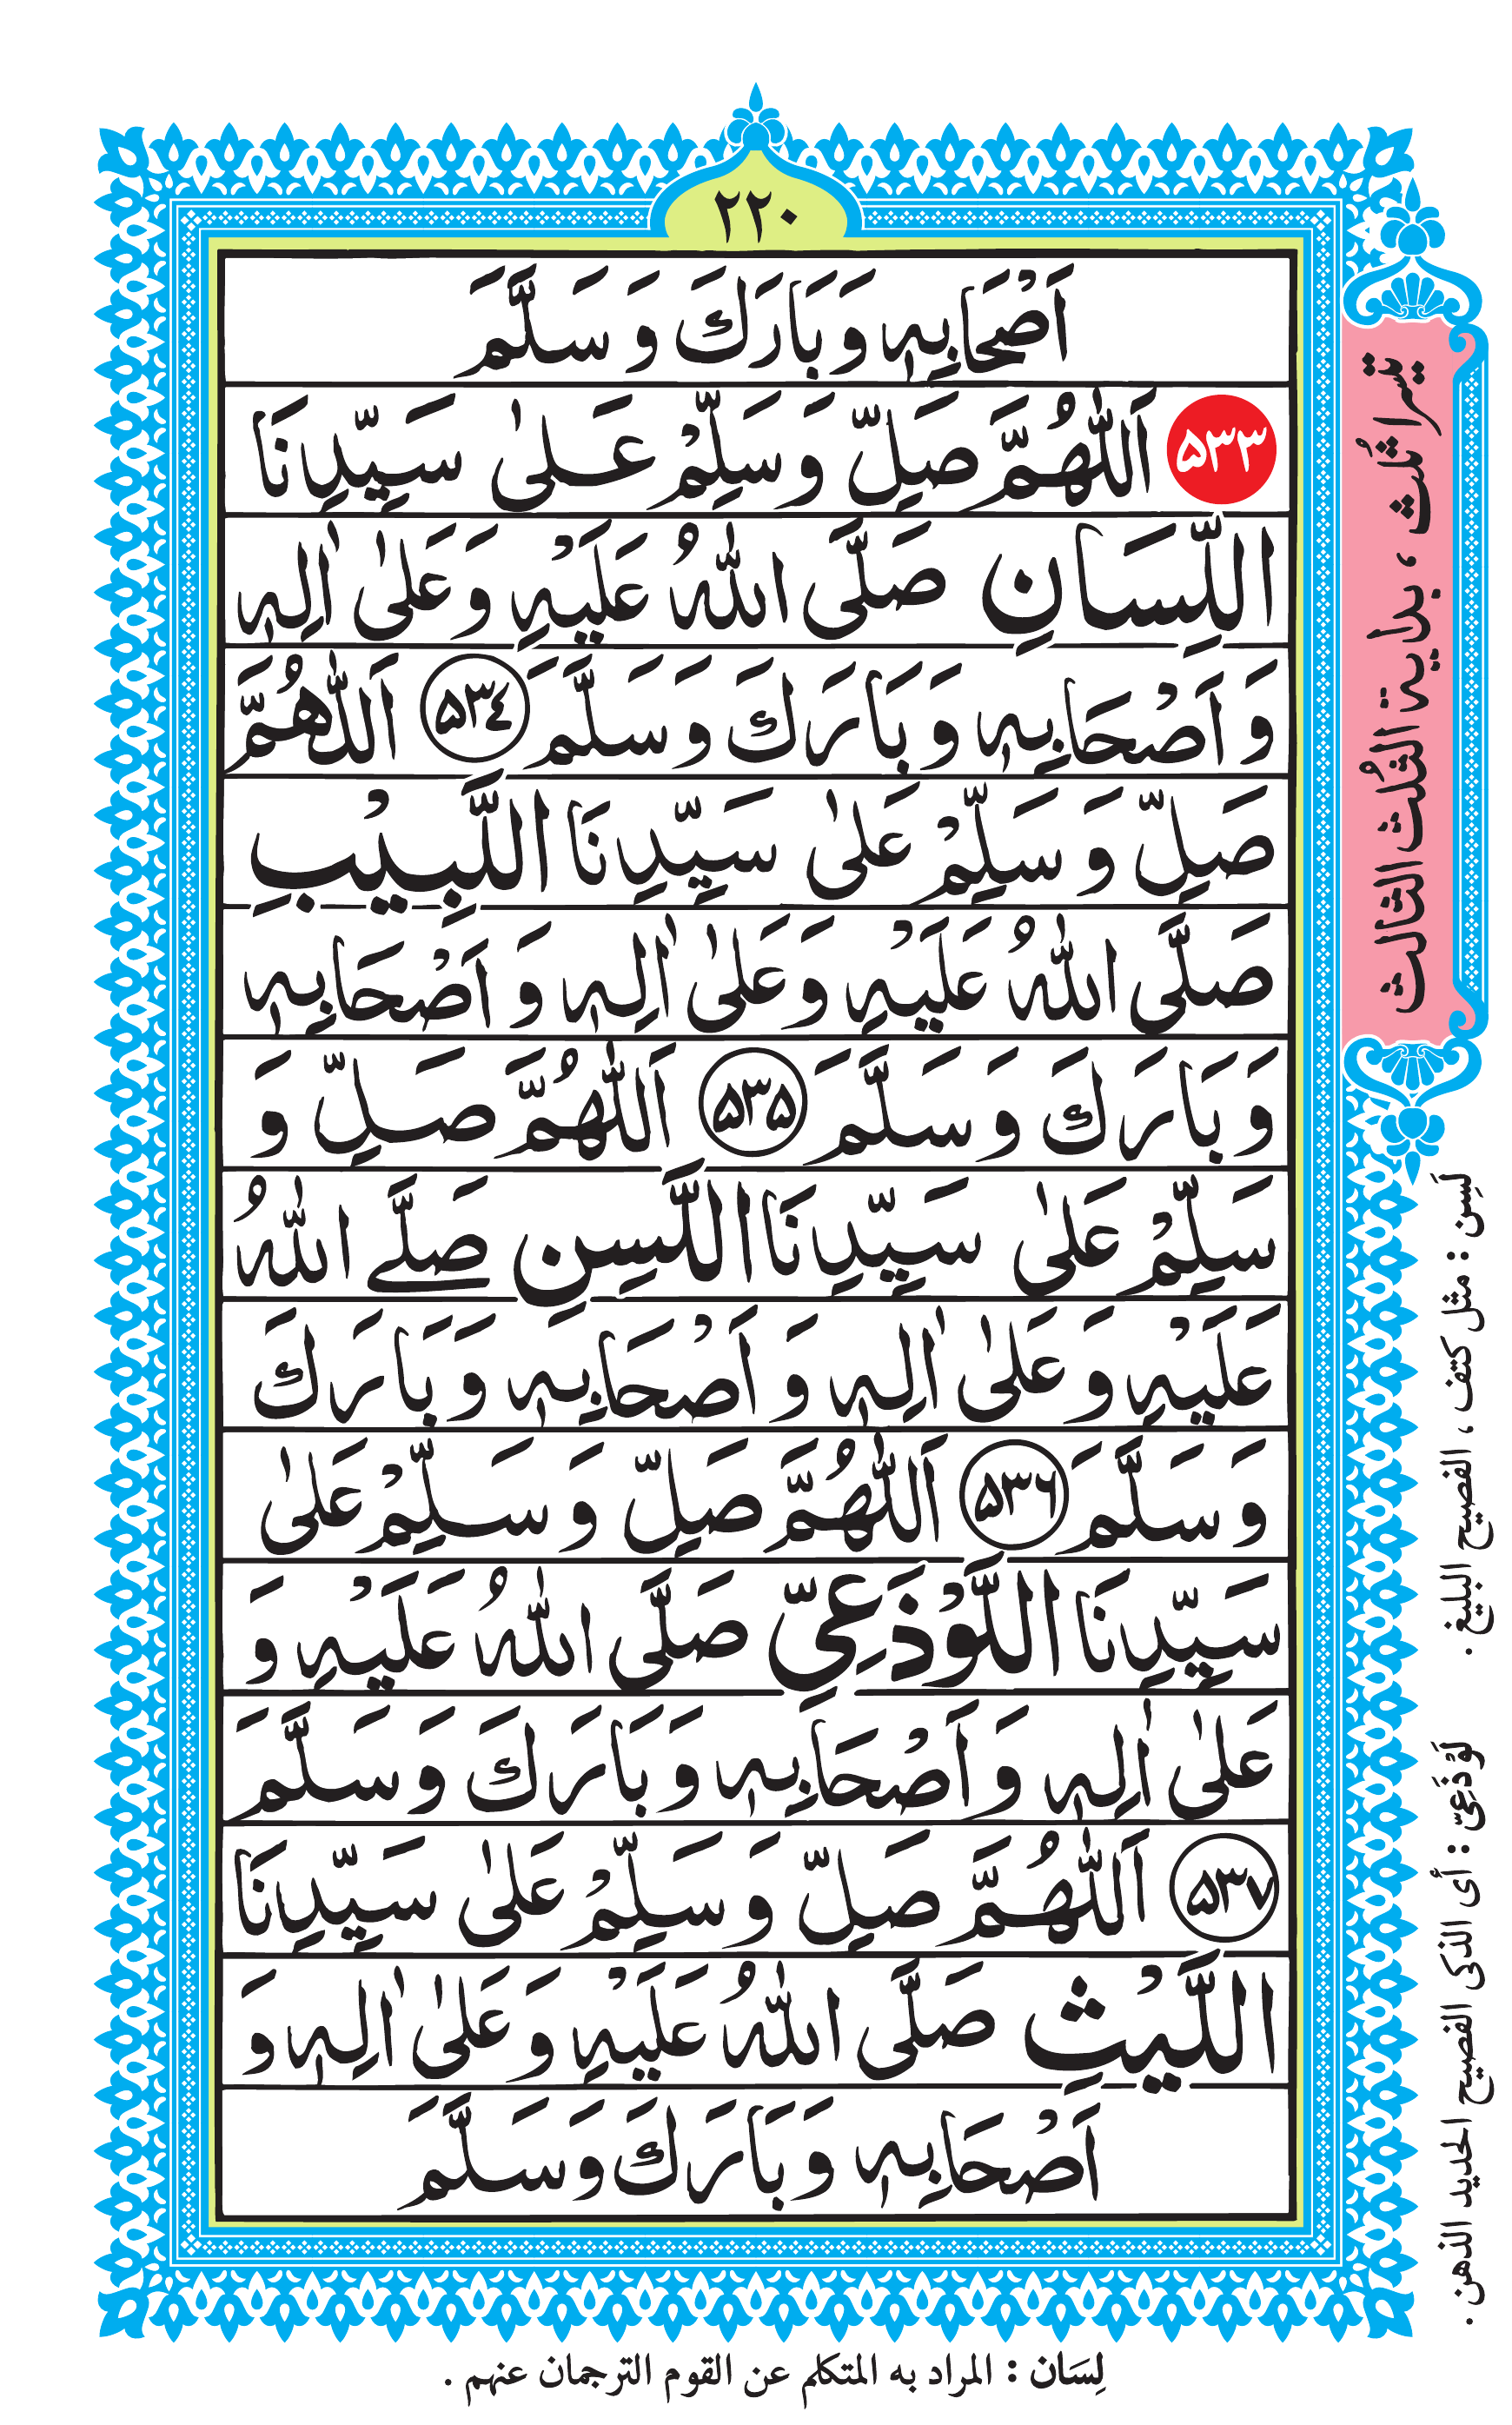 ٢٢٠
اَصْحَابِهٖ وَبَارَكَ وَ سَلَّمَ
۵۳۳ اَللّٰهُمَّ صَلِّ وَ سَلِّمْ عَلٰى سَيِّدِنَا
اللِّسَانِ صَلَّى اللّٰهُ عَلَيْهِ وَعَلٰى اٰلِهٖ
وَ اَصْحَابِهٖ وَبَارَكَ وَسَلَّمَ ۵۳٤ اَللّٰهُمَّ
صَلِّ وَ سَلِّمْ عَلٰى سَيِّدِنَا اللَّبِيْبِ
صَلَّى اللّٰهُ عَلَيْهِ وَعَلٰى اٰلِهٖ وَ اَصْحَابِهٖ
وَبَارَكَ وَسَلَّمَ ۵۳۵ اَللّٰهُمَّ صَلِّ وَ
سَلِّمْ عَلٰى سَيِّدِنَا اللَّسِنِ صَلَّے اللّٰهُ
عَلَيْهِ وَعَلٰى اٰلِهٖ وَ اَصْحَابِهٖ وَبَارَكَ
وَسَلَّمَ ۵۳٦ اَللّٰهُمَّ صَلِّ وَ سَلِّمْ عَلٰى
سَيِّدِنَا اللَّوْذَعِيِّ صَلَّى اللّٰهُ عَلَيْهِ وَ
عَلٰى اٰلِهٖ وَ اَصْحَابِهٖ وَبَارَكَ وَسَلَّمَ
۵۳۷ اَللّٰهُمَّ صَلِّ وَ سَلِّمْ عَلٰى سَيِّدِنَا
اللَّيْثِ صَلَّى اللّٰهُ عَلَيْهِ وَعَلٰى اٰلِهٖ وَ
اَصْحَابِهٖ وَبَارَكَ وَسَلَّمَ
تيسرا ثُلث ، بداية الثُلث الثالث
لَسِن : مثل كتف ، الفصيح البليغ .
لَوْذَعِىّ : أى الذكى الفصيح الحديد الذهن .
لِسَان : المراد به المتكلم عن القوم الترجمان عنهم .